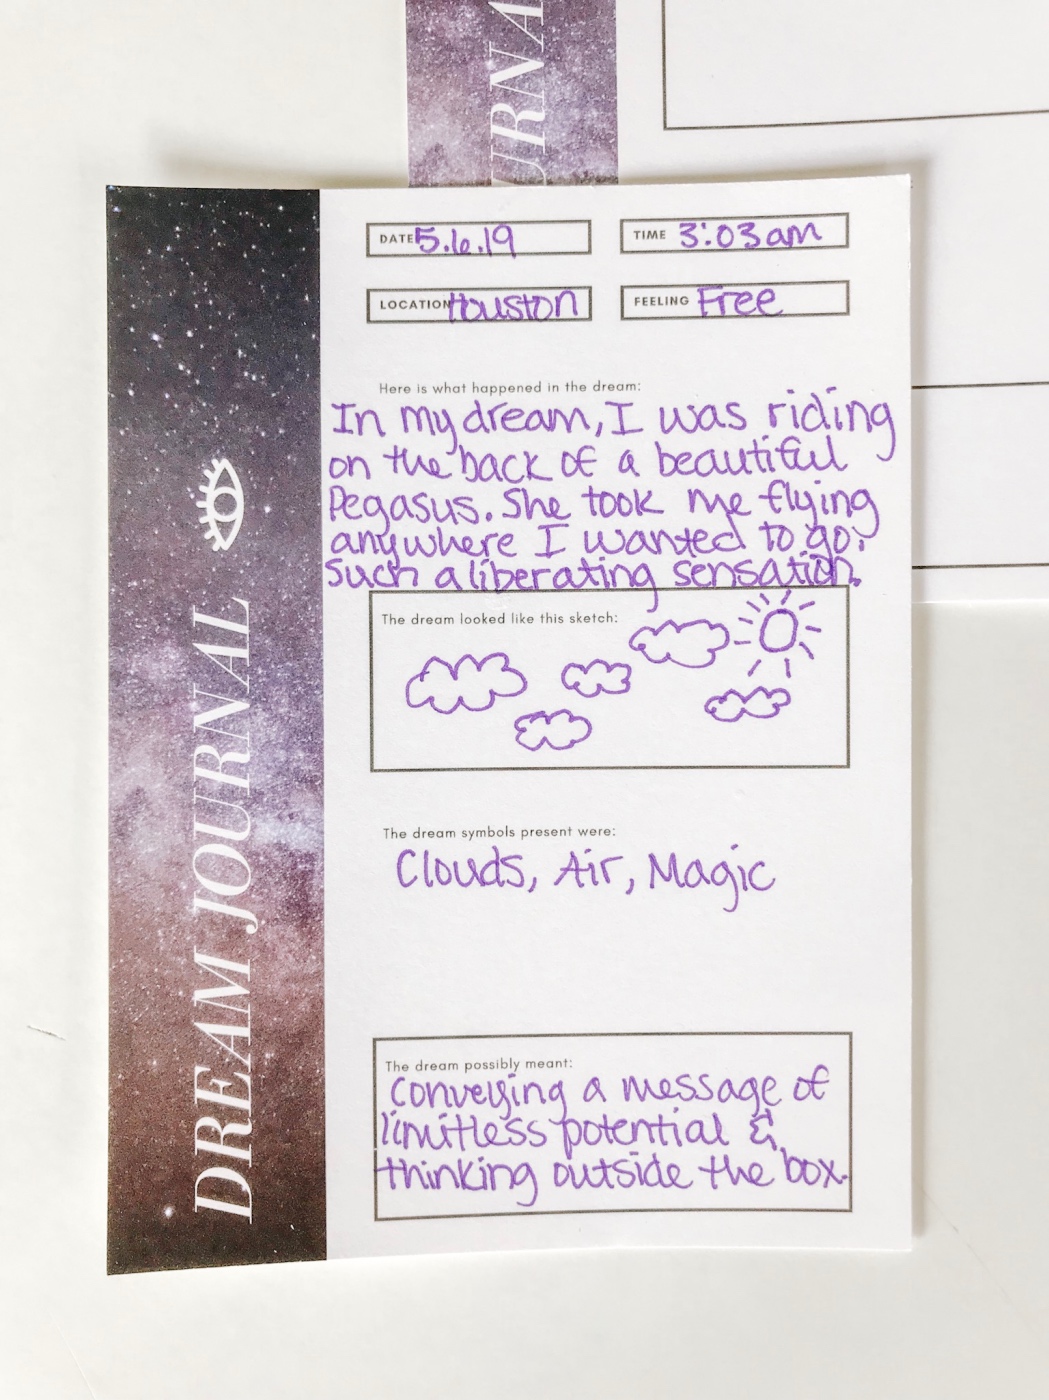 URNA
DREAM JOURNAL
DATE 5.6.19
TIME 3:03am
LOCATION Houston
FEELING Free
Here is what happened in the dream:
In my dream, I was riding
on the back of a beautiful
Pegasus. She took me flying
anywhere I wanted to go.
Such a liberating sensation.
The dream looked like this sketch:
The dream symbols present were:
Clouds, Air, Magic
The dream possibly meant:
Conveying a message of
limitless potential &
thinking outside the box.